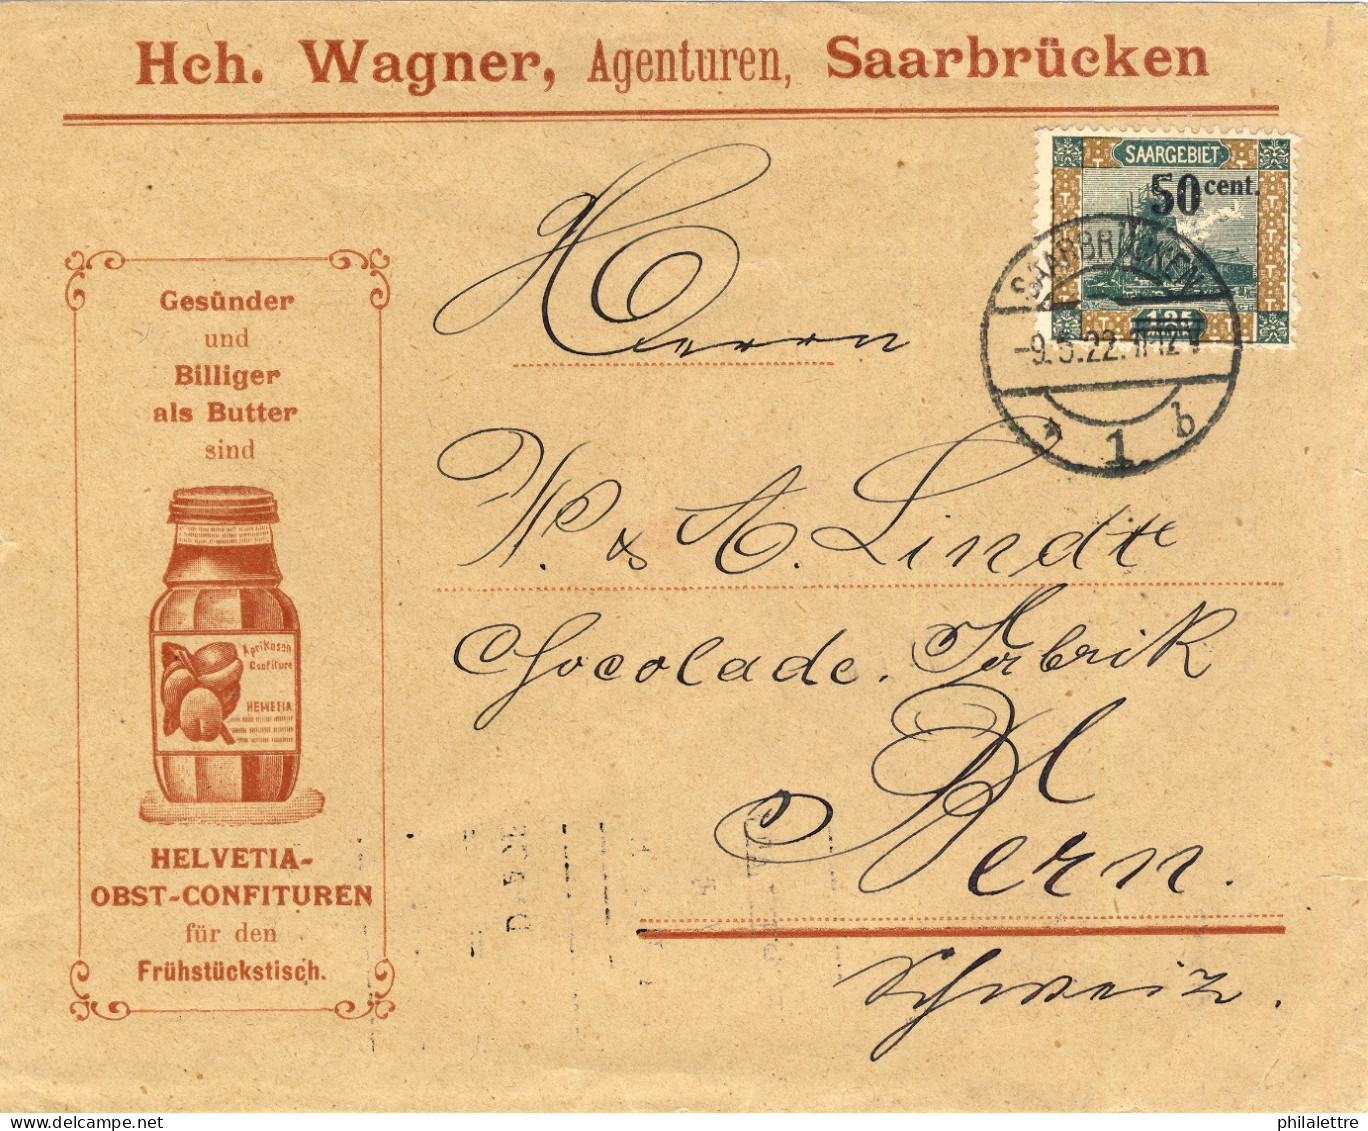 Hch. Wagner, Agenturen, Saarbrücken
SAARGEBIET
50 cent.
SAARBRÜCKEN
-9.5.22. 11-12 V
* 1 b
Gesünder
und
Billiger
als Butter
sind
Aprikosen
Confiture
HELVETIA
HELVETIA-
OBST-CONFITUREN
für den
Frühstückstisch.
Herrn
W. & A. Lindt
Chocolade. Fabrik
Bern.
Schweiz.
philalettre